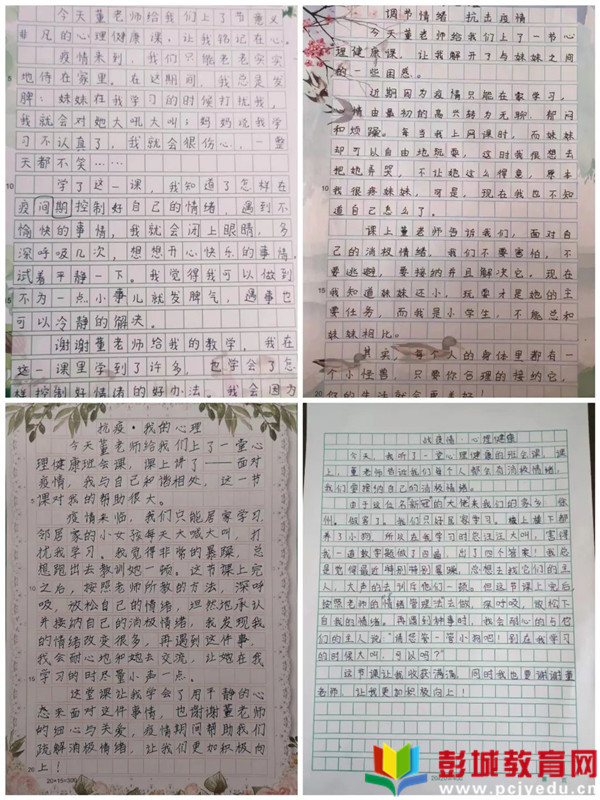 今天董老师给我们上了节意义
非凡的心理健康课，让我铭记在心。
疫情来到，我们只能老老实实
地待在家里。在这期间，我总是发
脾；妹妹在我学习的时候打扰我，
我就会对她大吼大叫；妈妈说我学
习不认真了，我就会很伤心，一整
天都不笑……
学了这一课，我知道了怎样在
疫间期控制好自己的情绪，遇到不
愉快的事情，我就会闭上眼睛，多
深呼吸几次，想想开心快乐的事情，
试着平静一下。我觉得我可以做到
不为一点小事儿就发脾气，遇事也
可以冷静的解决。
谢谢董老师给我的教学，我在
这一课里学到了许多，也学会了怎
样控制好情绪的好办法。我会因为
调节情绪 抗击疫情
今天董老师给我们上了一节心
理健康课，让我解开了与妹妹之间
的一些困惑。
近期因为疫情只能在家学习，
情由最初的高兴转为无聊、郁闷
和烦躁。每当我上网课时，而妹妹
却可以自由地玩耍，这时我很想去
把她弄哭，不让她这么得意，原本
我很疼妹妹，可是，现在我也不知
道自己怎么了。
课上董老师告诉我们，面对自
己的消极情绪，我们不要害怕，不
要逃避，要接纳并且解决它。现在
我知道妹妹还小，玩耍才是她的主
要任务，而我是小学生，不能总和
妹妹相比。
其实，每个人的身体里都有一
个小怪兽，只要你合理的接纳它，
你的生活就会更美好！
抗疫·我的心理
今天董老师给我们上了一堂心
理健康班会课，课上讲了——面对
疫情，我与自己和谐相处，这一节
课对我的帮助很大。
疫情来临，我们只能居家学习，
邻居家的小女孩每天大喊大叫，打
扰我学习。我觉得非常的暴躁，总
想跑出去教训她一顿。这节课上完
之后，按照老师所教的方法，深呼
吸，放松自己的情绪，坦然地承认
并接纳自己的消极情绪，我发现我
的情绪改变很多，再遇到这件事，
我会耐心地和她去交流，让她在我
学习的时尽量小声一点。
这堂课让我学会了用平静的心
态来面对这件事情，也谢谢董老师
的细心与关爱，疫情期间帮助我们
疏解消极情绪，让我们更加积极向
上！
20×15=300
战疫情·心理健康
今天，我听了一堂心理健康的班会课，课
上，董老师告诉我们每个人都会有消极情绪，
我们要接纳自己的消极情绪。
由于这位名“新冠”的“大佬”来我们的家乡徐
州“做客”了。我们只好居家学习。楼上楼下都
养了小狗，所以在我学习时总汪汪大叫，害得
我一道数学题做了四遍，出了四个答案！我总
是觉得最近特别特别暴躁，总想去找它们的主
人，大声的去训斥他们一顿。但这节课上完后，
按照老师的“情绪管理”法去做，深呼吸，放松下
自我的情绪。再遇到种事时，我会耐心的与它
们的主人说“请您管一管小狗吧！别在我学习
的时候大叫，可以吗？”
这节课让我收获满满，同时我也要谢谢董
老师，让我更加积极向上！
彭城教育网
www.pcjyedu.cn